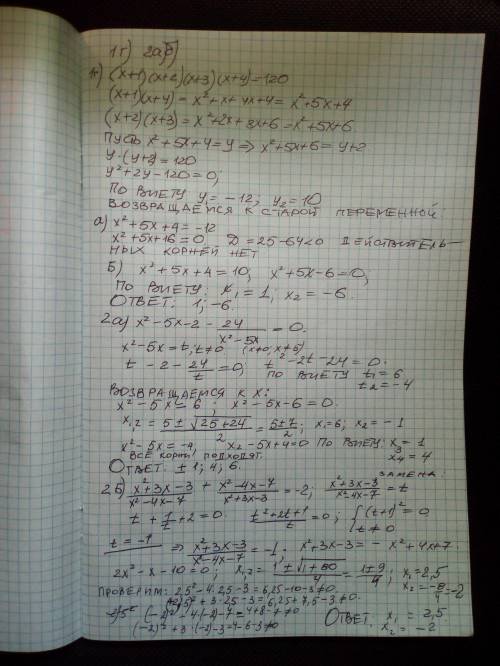 1г) 2а,б)
1г) (x+1)(x+2)(x+3)(x+4)=120
(x+1)(x+4) = x²+x+4x+4 = x²+5x+4
(x+2)(x+3) = x²+2x+3x+6 = x²+5x+6
ПУСТЬ x²+5x+4=y ⇒ x²+5x+6 = y+2
y·(y+2) = 120
y²+2y-120=0;
ПО ВИЕТУ y₁= -12; y₂=10
ВОЗВРАЩАЕМСЯ К СТАРОЙ ПЕРЕМЕННОЙ
а) x²+5x+4 = -12
x²+5x+16=0 D=25-64<0 ДЕЙСТВИТЕЛЬ-
НЫХ КОРНЕЙ НЕТ
Б) x²+5x+4=10; x²+5x-6=0;
ПО ВИЕТУ: x₁=1; x₂=-6.
ОТВЕТ: 1; -6.
2а) x²-5x-2- 24/(x²-5x) =0.
x²-5x=t; t≠0 (x≠0, x≠5)
t-2- 24/t =0; t²-2t-24=0.
ПО ВИЕТУ t₁=6
t₂=-4
ВОЗВРАЩАЕМСЯ К X:
x²-5x=6; x²-5x-6=0.
x₁,₂ = (5±√(25+24))/2 = (5±7)/2; x₁=6; x₂=-1
x²-5x=-4; x²-5x+4=0 ПО ВИЕТУ: x₃=1
x₄=4
ВСЕ КОРНИ ПОДХОДЯТ.
ОТВЕТ: ±1; 4; 6.
2Б) (x²+3x-3)/(x²-4x-7) + (x²-4x-7)/(x²+3x-3) = -2; ЗАМЕНА: (x²+3x-3)/(x²-4x-7) = t
t + 1/t +2=0. (t²+2t+1)/t =0; {(t+1)²=0 t≠0
t=-1 ⇒ (x²+3x-3)/(x²-4x-7) = -1; x²+3x-3=-x²+4x+7.
2x²-x-10=0; x₁,₂= (1±√(1+80))/4 = (1±9)/4; x₁=2,5
x₂=-8/4=-2
ПРОВЕРИМ: 2,5²-4·2,5-3=6,25-10-3≠0.
2,5²+3·2,5-3=6,25+7,5-3≠0.
(-2)²-4·(-2)-7=4+8-7≠0
(-2)²+3·(-2)-3=4-6-3≠0
ОТВЕТ: x₁=2,5
x₂=-2